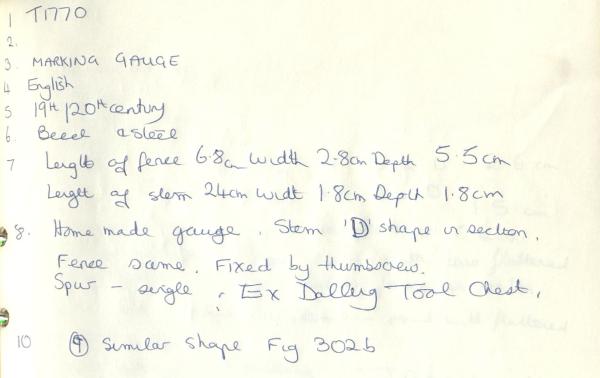 1 T1770
2.
3. MARKING GAUGE
4 English
5 19th/20th century
6. Beech & steel
7 Length of fence 6.8cm Width 2.8cm Depth 5.5cm
Length of stem 24cm Width 1.8cm Depth 1.8cm
8. Home made gauge. Stem 'D' shape in section.
Fence same. Fixed by thumbscrew.
Spur - single. Ex Dalling Tool Chest.
10 9 Similar shape Fig 302b